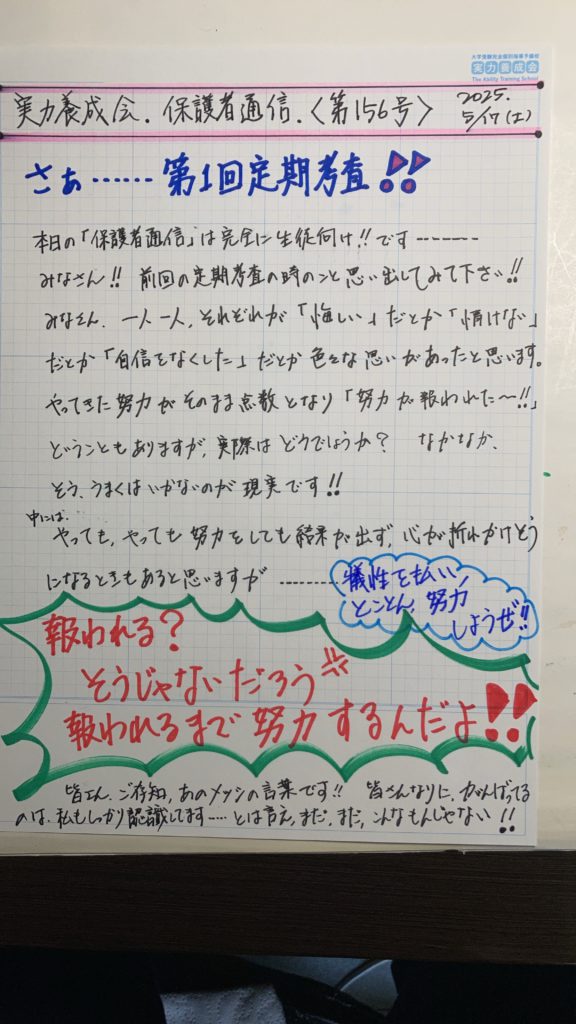 大学受験完全個別指導予備校
実力養成会
The Ability Training School
実力養成会.保護者通信.〈第156号〉 2025.
5/17(土)
さぁ……第1回定期考査!!
本日の「保護者通信」は完全に生徒向け!!です-------
みなさん!! 前回の定期考査の時のこと思い出してみて下さい!!
みなさん、一人一人、それぞれが「悔しい」だとか「情けない」
だとか「自信をなくした」だとか色々な思いがあったと思います。
やってきた努力がそのまま点数となり「努力が報われた〜!!」
ということもありますが、実際はどうでしょうか? なかなか、
そう、うまくはいかないのが現実です!!
中には、
やっても、やっても努力をしても結果が出ず、心が折れかけそう
になるときもあると思いますが --------
犠性を払い、
とことん、努力
しようぜ!!
報われる?
そうじゃないだろう
報われるまで努力するんだよ!!
皆さん、ご存知、あのメッシの言葉です!! 皆さんなりに、がんばってる
のは、私もしっかり認識してます……とは言え、まだ、まだ、こんなもんじゃない!!